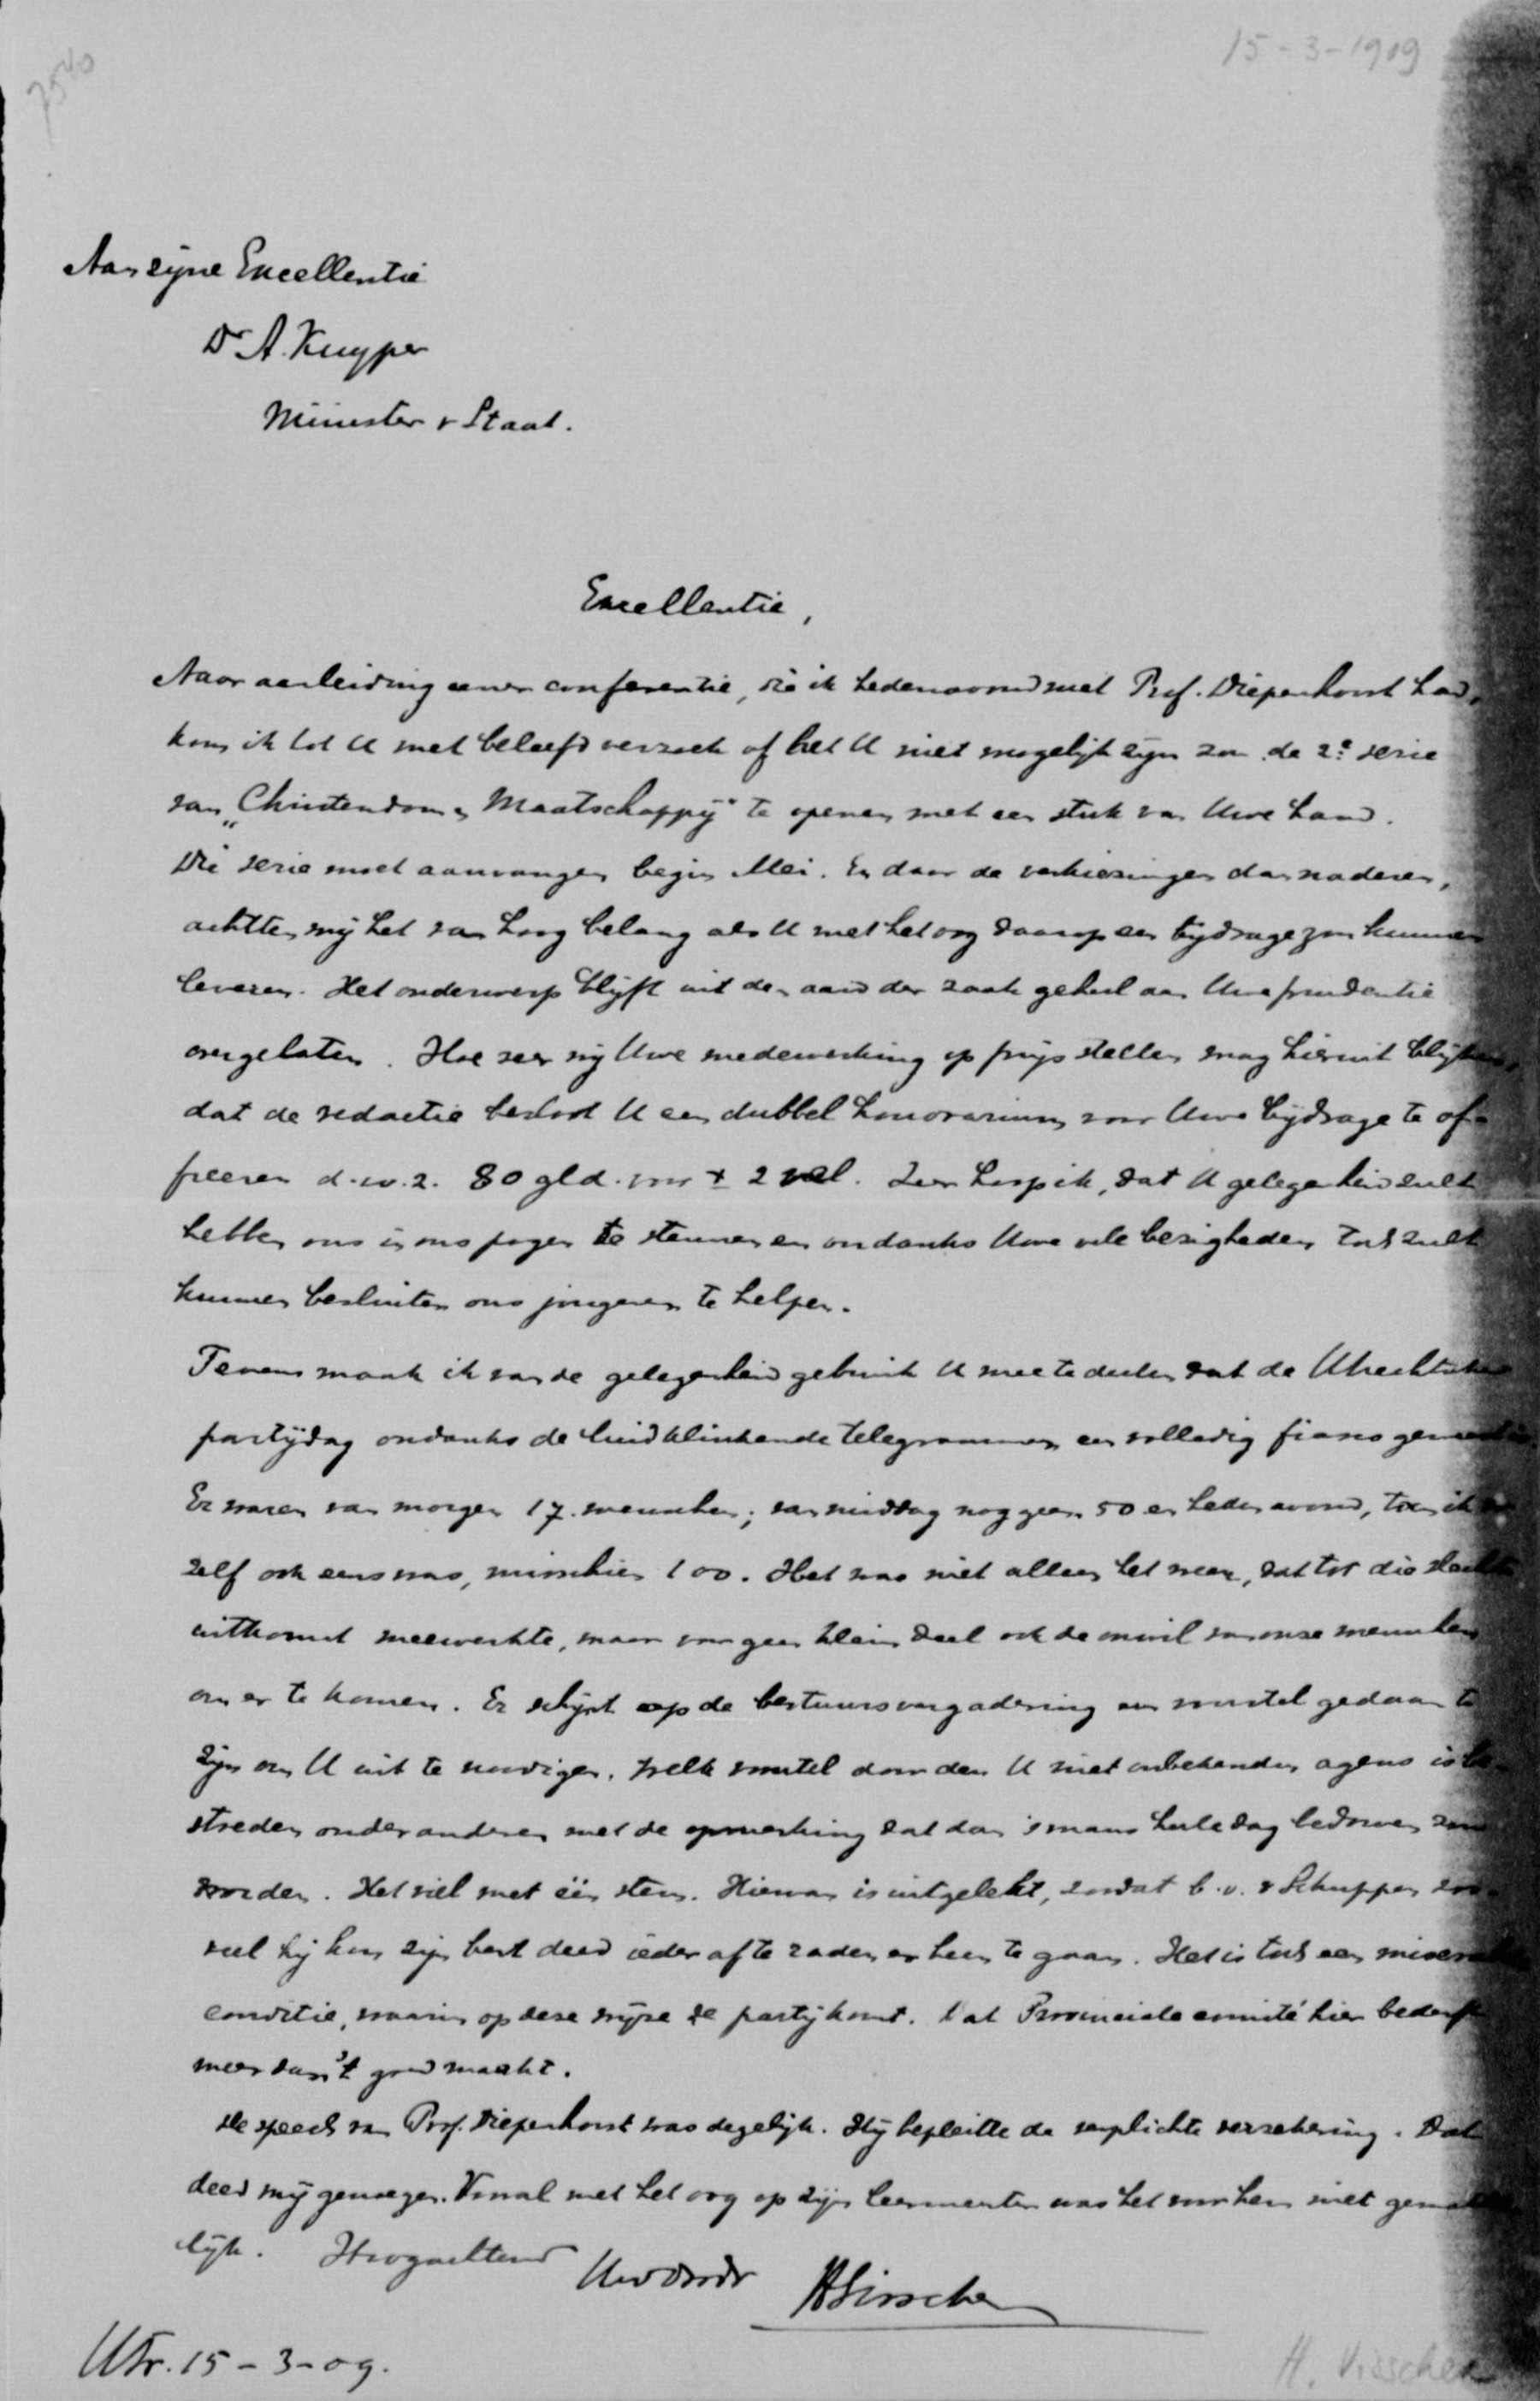 7540
15-3-1909
Aan zijne Excellentie
Dr A. Kuyper
Minister v Staat.
Excellentie,
Naar aanleiding eener conferentie, die ik hedenavond met Prof. Diepenhorst had,
kom ik tot U met beleefd verzoek of het U niet mogelijk zijn zou de 2e serie
van „Christendom & Maatschappij" te openen met een stuk van Uwe hand.
Die serie moet aanvangen begin Mei. En daar de verkiezingen dan naderen,
achtten wij het van hoog belang als U met het oog daarop een bijdrage zou kunnen
leveren. Het onderwerp blijft uit den aard der zaak geheel aan Uwe prudentie
overgelaten. Hoe zeer wij Uwe medewerking op prijs stellen mag hieruit blijken,
dat de redactie besloot U een dubbel honorarium voor Uwe bijdrage te of-
freeren d.w.z. 80 gld. voor ± 2 vel. Zeer hoop ik, dat U gelegenheid zult
hebben ons in ons pogen te steunen en ondanks Uwe vele bezigheden toch zult
kunnen besluiten ons jongeren te helpen.
Tevens maak ik van de gelegenheid gebruik U mee te deelen dat de Utrechtsche
partijdag ondanks de luidklinkende telegrammen een volledig fiasco
Er waren van morgen 17 menschen; van middag nog geen 50 en heden avond, toen ik er
zelf ook eens was, misschien 100. Het was niet alleen het weer, dat tot die slechte
uitkomst meewerkte, maar voor geen klein deel ook de onwil van onze menschen
om er te komen. Er schijnt op de bestuursvergadering een voorstel gedaan te
zijn om U uit te noodigen, welk voorstel door den U niet onbekenden agens is be-
streden onder anderen met de opmerking dat dan 's mans heele dag bedorven zou
worden. Het viel met één stem. Hiervan is uitgelekt, zoodat b.v. v Schuppen zoo-
veel hij kon zijn best deed ieder af te raden er heen te gaan. Het is toch een miserabele
conditie, waarin op deze wijze de partij komt. Dat Provinciale comité hier bederft
meer dan 't goed maakt.
De speech van Prof. Diepenhorst was degelijk. Hij bepleitte de verplichte verzekering. Dat
deed mij genoegen. Vooral met het oog op zijn leermeester was het voor hem niet gemakke-
lijk. Hoogachtend
Uw dwdr
HVisscher
Utr. 15-3-09.
H. Visscher